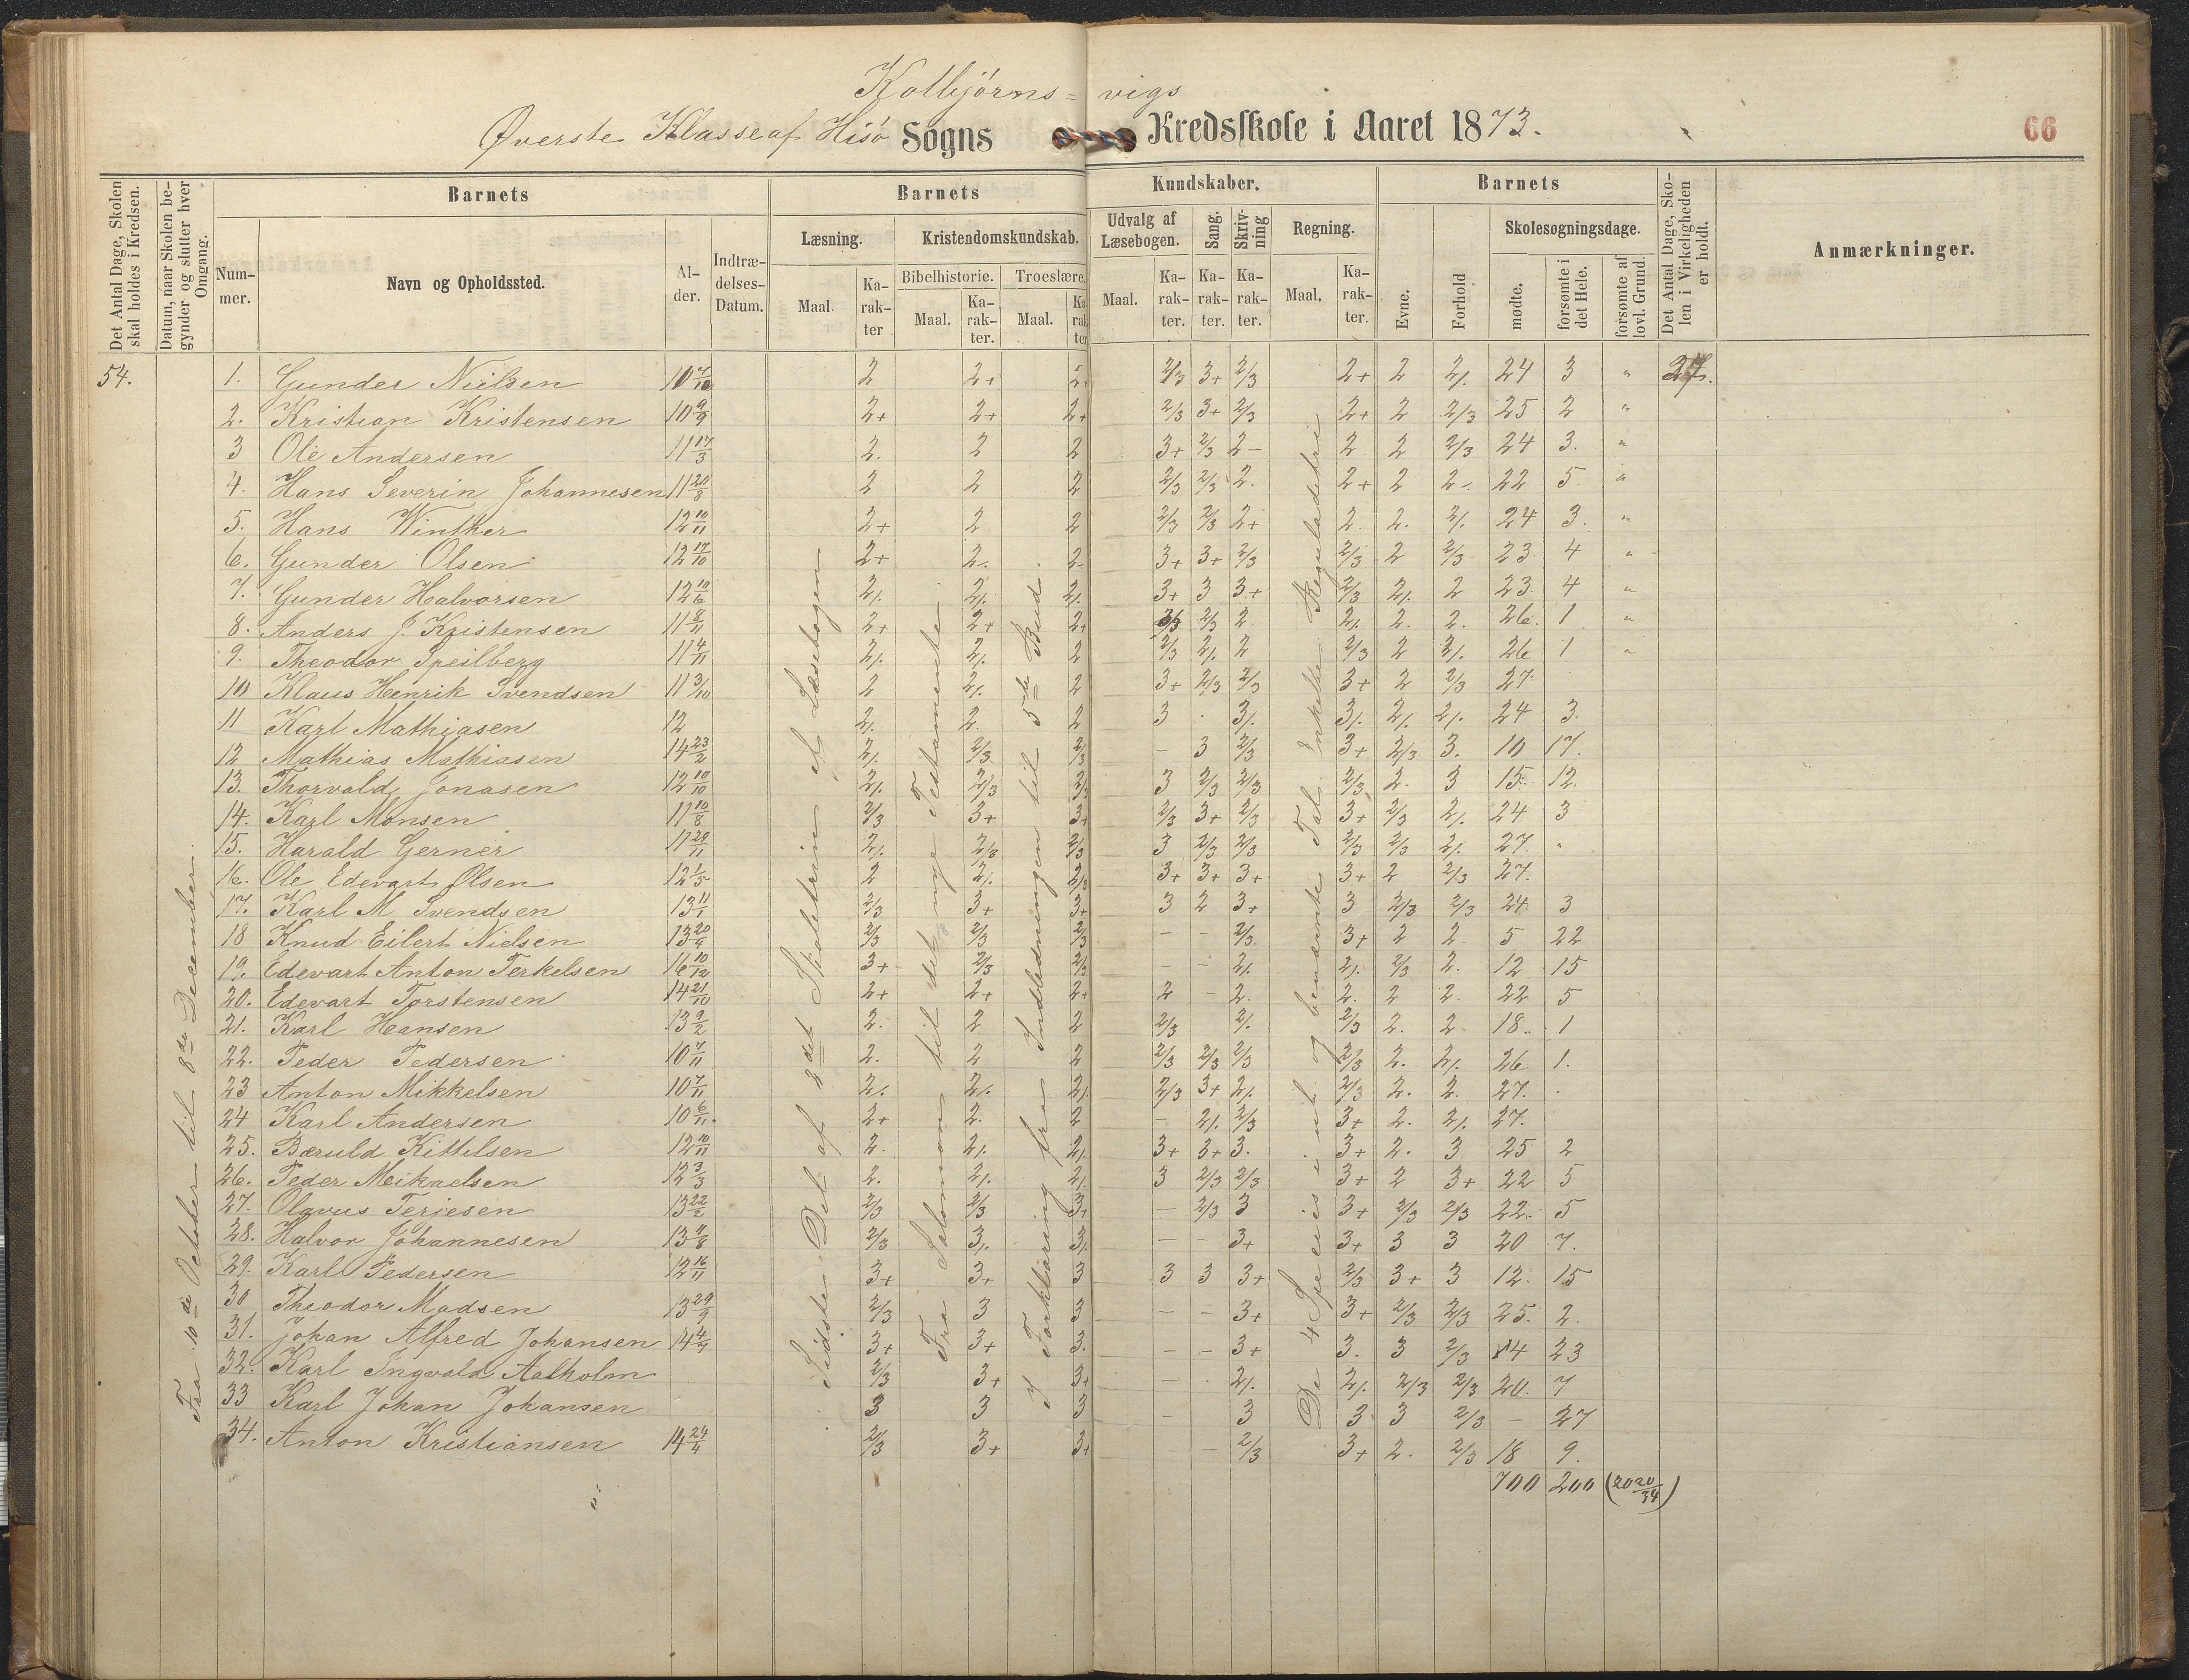 Kolbjörns= vigs
Øverste Klasse af Hisö Sogns Kredsskole i Aaret 1873.
66
Det Antal Dage, Skolen skal holdes i Kredsen.
Datum, naar Skolen begynder og slutter hver Omgang.
Barnets
Barnets
Kundskaber.
Barnets
Det Antal Dage, Skolen i Virkeligheden er holdt.
Anmærkninger.
Nummer.
Navn og Opholdssted.
Alder.
Indtrædelses-Datum.
Læsning.
Kristendomskundskab.
Udvalg af Læsebogen.
Sang.
Skrivning
Regning.
Evne.
Forhold
Skolesøgningsdage.
Maal.
Karakter
Bibelhistorie.
Troeslære.
Maal.
Karakter.
Maal.
Karakter
Maal.
Karakter.
Karakter.
Karakter.
Maal.
Karakter.
mødte.
forsømte i det Hele.
forsømte af lovl. Grund.
Fra 10de October til 8de December.
Sidste Del af 3det Skoletrin af Læsebogen
Fra Salomon til det nye Testamente.
Forklaring fra Indledningen til 5te Bud.
De 4 Species i ub. og benævnte Tal. Enkelte Reguladetri
54. 1. Gunder Nielsen 10 7/10 2 2+ 2+ 2/3 3+ 2/3 2+ 2 2/. 24 3 " 27.
2. Kristian Kristensen 10 9/9 2+ 2+ 2+ 2/3 3+ 2/3 2+ 2 2/3 25 2 "
3 Ole Andersen 11 17/3 2. 2 2 3+ 2/3 2- 2 2 2/3 24 3. "
4. Hans Severin Johannesen 11 20/8 2 2 2 2/3 2/3 2. 2+ 2 2-. 22 5. "
5. Hans Winther 12 10/11 2+ 2 2 2/3 2/3 2+ 2. 2. 2/. 24 3. "
6. Gunder Olsen 12 17/10 2+ 2-. 2- 3+ 3+ 2/3 2/3 2 2/3 23. 4 "
7. Gunder Halvorsen 12 10/6 2/. 2/. 2/. 3+ 3 3+ 2/3 2/. 2 23. 4 "
8. Anders J. Kristensen 11 8/11 2+ 2+ 2+ 2/3 2/3 2 2/. 2. 2. 26. 1. "
9. Theodor Speilberg 11 4/11 2/. 2/. 2 2/3 2/. 2 2/3 2 2/. 26 1 "
10 Klaus Henrik Svendsen 11 3/10 2 2/. 2 3+ 2/3 2/3 3+ 2 2/3 27.
11 Karl Mathiasen 12 2/. 2. 2 3 . 3/. 3/. 2/. 2/. 24 3.
12 Mathias Mathiasen 14 23/2 2/. 2/3 2/3 - 3 2/3 3+ 2/3 3. 10 17.
13. Thorvald Jonasen 12 10/10 2/. 2/3 2/3 3 2/3 2/3 2/3 2. 3 15. 12.
14. Karl Monsen 11 10/8 2/3 3+ 3+ 2/3 3+ 2/3 3+ 2/3 2/. 24 3
15. Harald Gerner 11 29/11 2/. 2/3 2/3 3 2/3 2/3 2/3 2/3 2/. 27. "
16. Ole Edevart Olsen 12 1/5 2 2/. 2/3 3+ 3+ 3+ 3+ 2 2/3 27.
17. Karl M Svendsen 13 11/1 2/3 3+ 3+ 3 2 3+ 3 2/3 2/3 24 3
18 Knud Eilert Nielsen 13 20/4 2/3 2/3 2/3 - - 2/3 3+ 2 2 5 22
19. Edevart Anton Terkelsen 16 10/12 3+ 2/3 2/3 - - 2/. 2/. 2/3 2. 12 15
20. Edevart Torstensen 14 21/10 2+ 2+ 2+ 2 - 2. 2. 2 2. 22 5
21. Karl Hansen 13 9/2 2. 2 2 2/3 2/. 2/3 2. 2. 18. 1
22. Peder Pedersen 10 7/11 2. 2 2 2/3 2/3 2/3 2/3 2. 2/. 26 1.
23 Anton Mikkelsen 10 7/11 2/. 2/. 2/. 2/3 3+ 2/. 2/3 2. 2. 27. .
24 Karl Andersen 10 6/11. 2+ 2. 2 - 2/. 2/3 3+ 2. 2/. 27.
25. Bæruld Kittilsen 12 10/11 2. 2/. 2/. 3+ 3+ 3. 3+ 2. 3 25 2
26. Peder Meikaelsen 12 3/3 2. 2/. 2/. 3 2/3 2/3 3+ 2 3+ 22 5
27. Olavus Terjesen 13 22/2 2/3 2/3 3+ - 2/3 3 3+ 2/3 2/3 22. 5
28. Halvor Johannesen 13 11/8 2/3 3/. 3/. - - 3+ 3+ 3 3 20 7.
29. Karl Pedersen 12 16/11 3+ 3+ 3 3 3 3+ 2/3 3+ 3 12. 15
30 Theodor Madsen 13 29/9 2/3 3 3 - - 3+ 3+ 2/3 2/3 25. 2.
31. Johan Alfred Johansen 14 4/4 3+ 3+ 3. - - 3+ 3. 3 2/3 4 23
32. Karl Ingvald Aalholm 2/3 3+ 3+ - . 2/. 2/. 2/3 2/3 20. 7
33 Karl Johan Johansen 3 3 3 - 3 3 3 2/3 - 27
34. Anton Kristiansen 14 24/4 2/3 3+ 3+ - 2/3 3+ 2. 2/3 18 9.
700 200 (20 20/34)